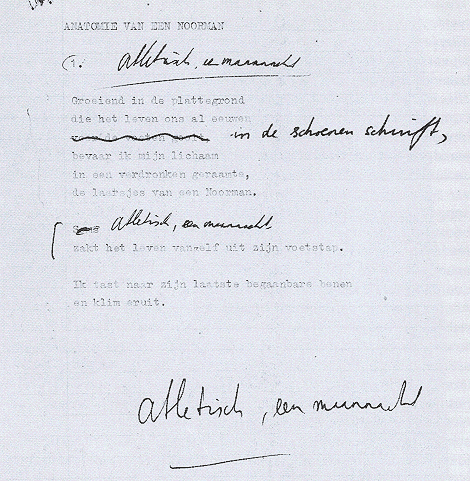 ANATOMIE VAN EEN NOORMAN
(1. atletisch, een maannacht
Groeiend in de plattegrond
die het leven ons al eeuwen
in de schoenen schrijft,
bevaar ik mijn lichaam
in een verdronken geraamte,
de laarsjes van een Noorman.
Soms atletisch, een maannacht
zakt het leven vanzelf uit zijn voetstap.
Ik tast naar zijn laatste begaanbare benen
en klim eruit.
atletisch, een maannacht